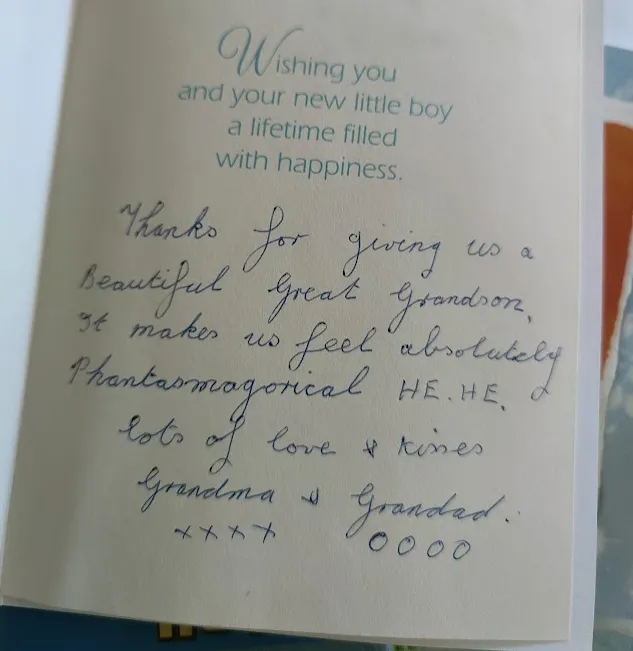 Wishing you
and your new little boy
a lifetime filled
with happiness.
Thanks for giving us a
Beautiful Great Grandson,
It makes us feel absolutely
Phantasmagorical HE. HE.
lots of love & kisses
Grandma & Grandad.
xxxx OOOO